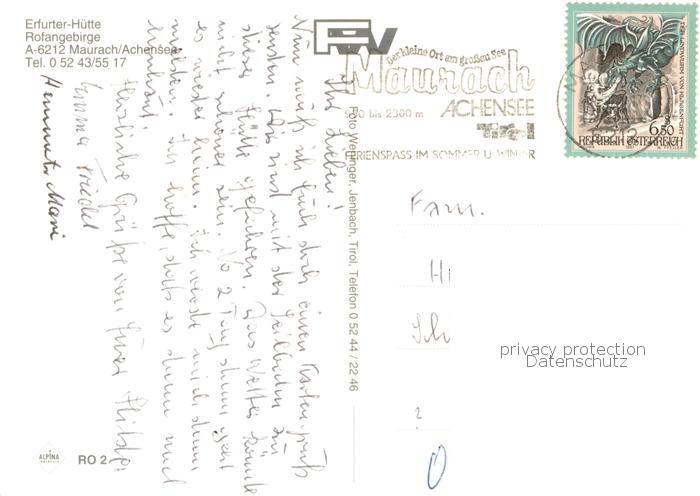 Erfurter-Hütte
Rofangebirge
A-6212 Maurach/Achensee
Tel. 0 52 43/55 17
Der kleine Ort am großen See
Maurach
950 bis 2300 m ACHENSEE
Tirol
FERIENSPASS IM SOMMER U. WINTER
DER LINDWURM VON KLAGENFURT
S
6.50
REPUBLIK ÖSTERREICH
Ihr Lieben!
Nun muß ich Euch doch einen Kartengruß
senden. Wir sind mit der Seilbahn zu
dieser Hütte gefahren. Das Wetter könnte
nicht schöner sein. No 2 Tag dann geht
es wieder heim. Ich werde mich dann
melden. Ich hoffe, daß es dann auch
hinhaut.
Herzliche Grüße von Eurer
Emma Friedel
Helmut. Mari
Foto Weninger, Jenbach, Tirol, Telefon 0 52 44 / 22 46
Fam.
Hi
Sch
privacy protection
Datenschutz
ALPINA
RO 2